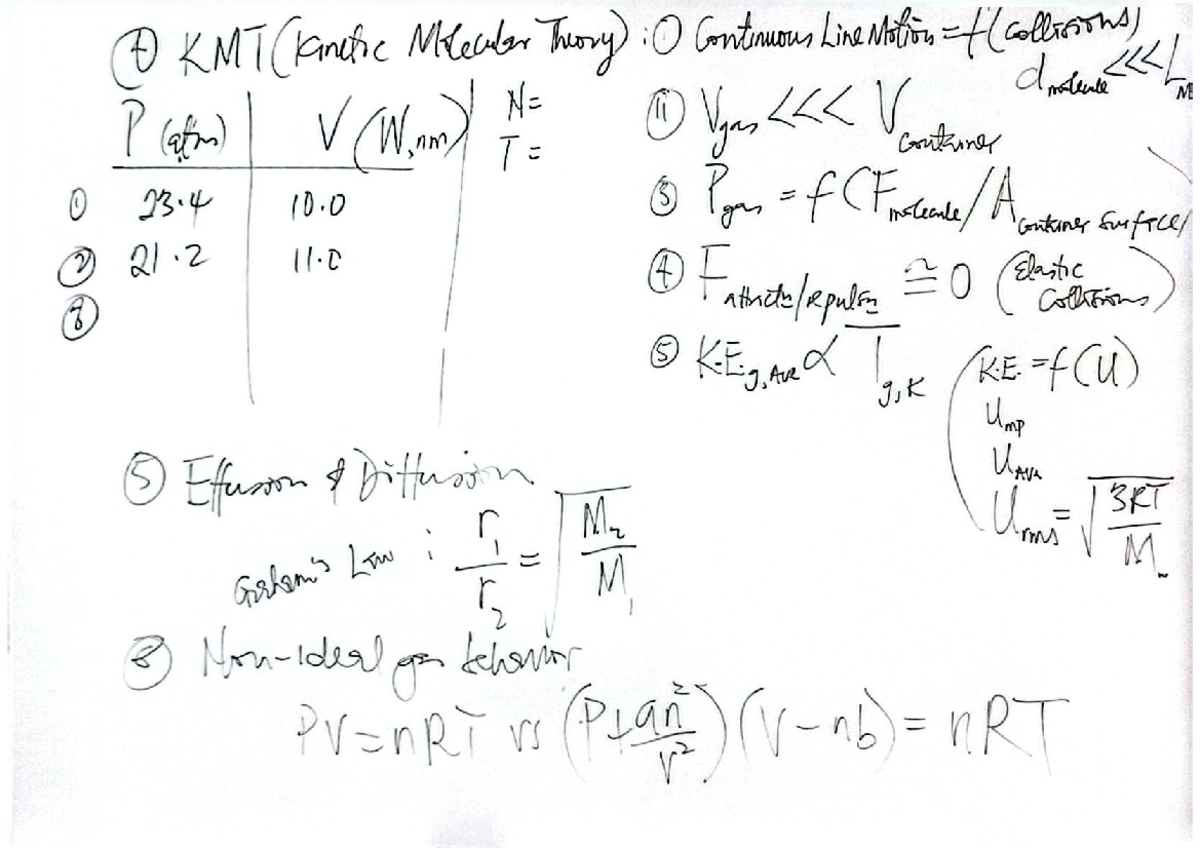 ④ KMT (Kinetic Molecular Theory) : ① Continuous Line Motion = f (collisions)
d molecule <<< L
P (atm) V (W, nm) N =
T =
① 23.4 10.0
② 21.2 11.0
③
⑪ V gas <<< V container
③ P gas = f (F molecule / A container surface)
④ F attractn/repulsn ≅ 0 (Elastic Collisions)
⑤ K.E. g, Ave ∝ T g, K
(K.E. = f (U)
U mp
U Ave
U rms = √(3RT/M)
⑤ Effusion & Diffusion
Graham's Law : r₁/r₂ = √(M₂/M₁)
⑧ Non-ideal gas behavior
PV = nRT vs (P + an²/V²) (V - nb) = nRT